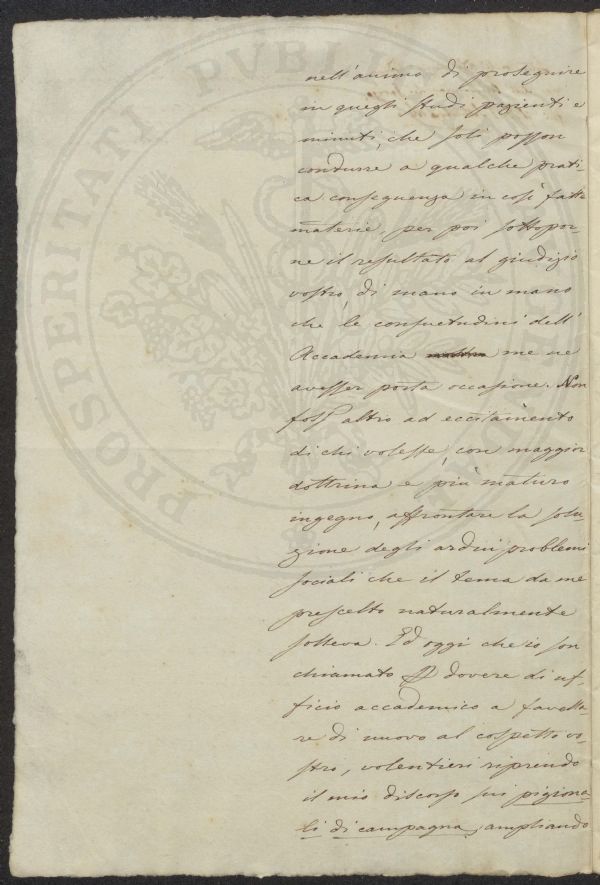 PROSPERITATI PUBLIC
nell'animo di proseguire
in quegli studi pazienti e
minuti, che soli posson
condurre a qualche prati-
ca conseguenza in così fatte
materie, per poi sottopor-
ne il resultato al giudizio
vostro, di mano in mano
che le consuetudini dell'
Accademia me ne
avesser porta occasione. Non
foss'altro ad eccitamento
di chi volesse, con maggior
dottrina e più maturo
ingegno, affrontare la solu-
zione degli ardui problemi
sociali che il tema da me
prescelto naturalmente
solleva. Ed oggi che io son
chiamato dovere di uf-
ficio accademico a favella-
re di nuovo al cospetto vo-
stro, volentieri riprendo
il mio discorso sui pigiona-
li di campagna, ampliando